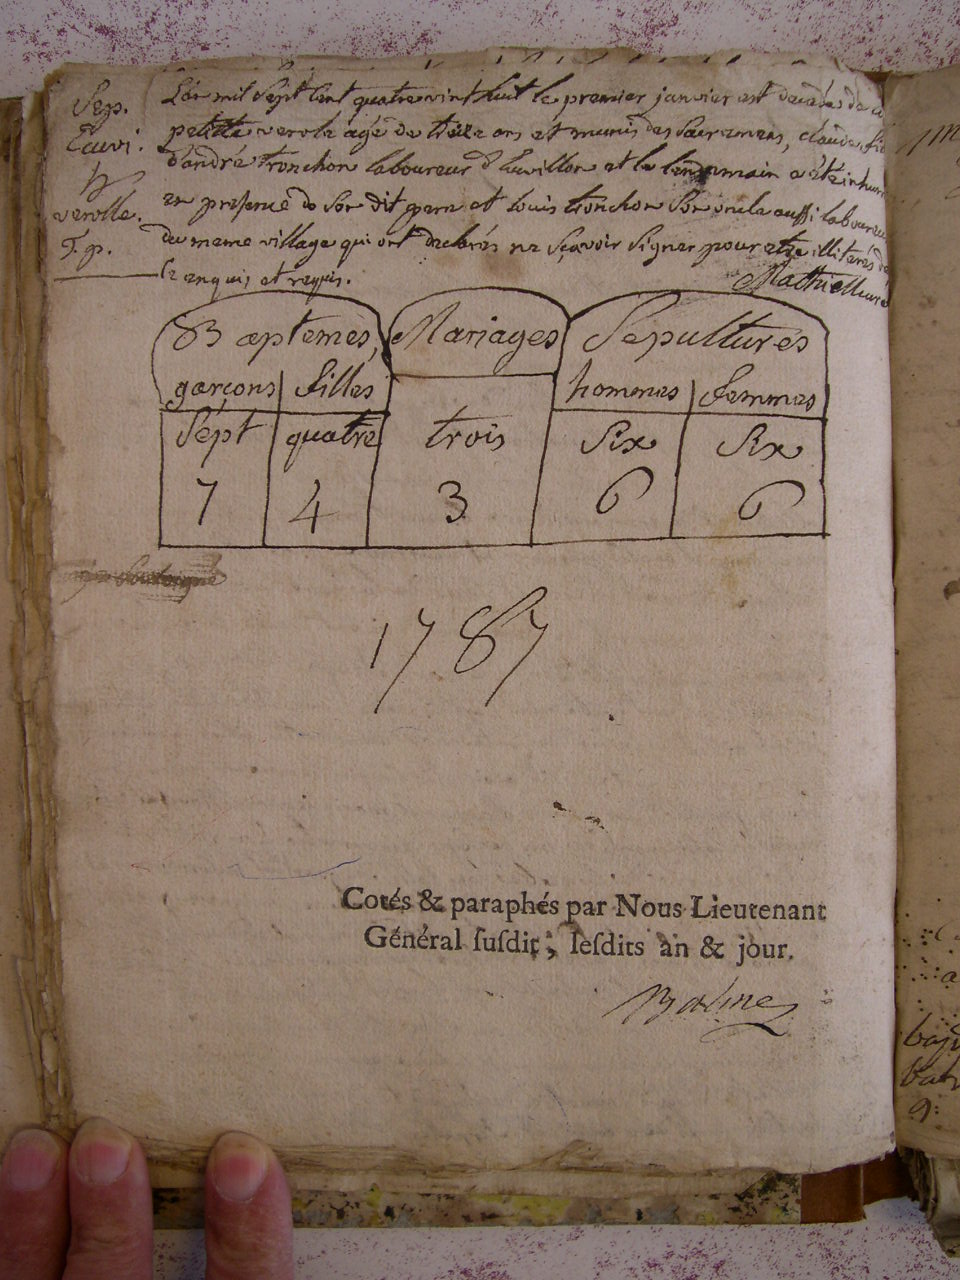 Sep.
L'an mil sept cent quatre vint huit le premier janvier est decédé de la
petite verole agé de treize ans et munis des sacremens, claude fils
d'andré tronchon laboureur d' et le lendemain a été inhumé
verolle.
en presence de son dit pere et louis tronchon son oncle aussi laboureur
T. p.
du meme village qui ont declarés ne sçavoir signer pour etre illiterés de
ce enquis et requis.
Baptemes, Mariages Sepultures
garçons filles hommes femmes
Sept quatre trois Six Six
7 4 3 6 6
1787
Cotés & paraphés par Nous Lieutenant
Général ſuſdit; leſdits an & jour.